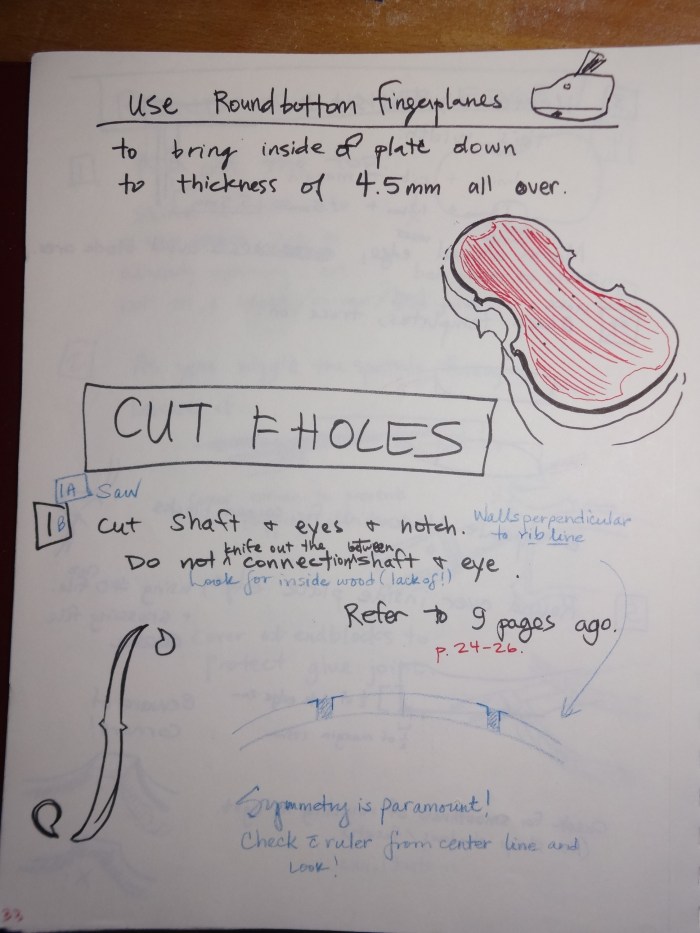 use Roundbottom fingerplanes
to bring inside of plate down
to thickness of 4.5mm all over.
CUT F HOLES
1A Saw
1B cut shaft & eyes & notch.
Walls perpendicular
to rib line
Do not knife out the connection between shaft & eye.
Look for inside wood (lack of!)
Refer to 9 pages ago.
p. 24-26.
Symmetry is paramount!
Check c̄ ruler from center line and
Look!
33